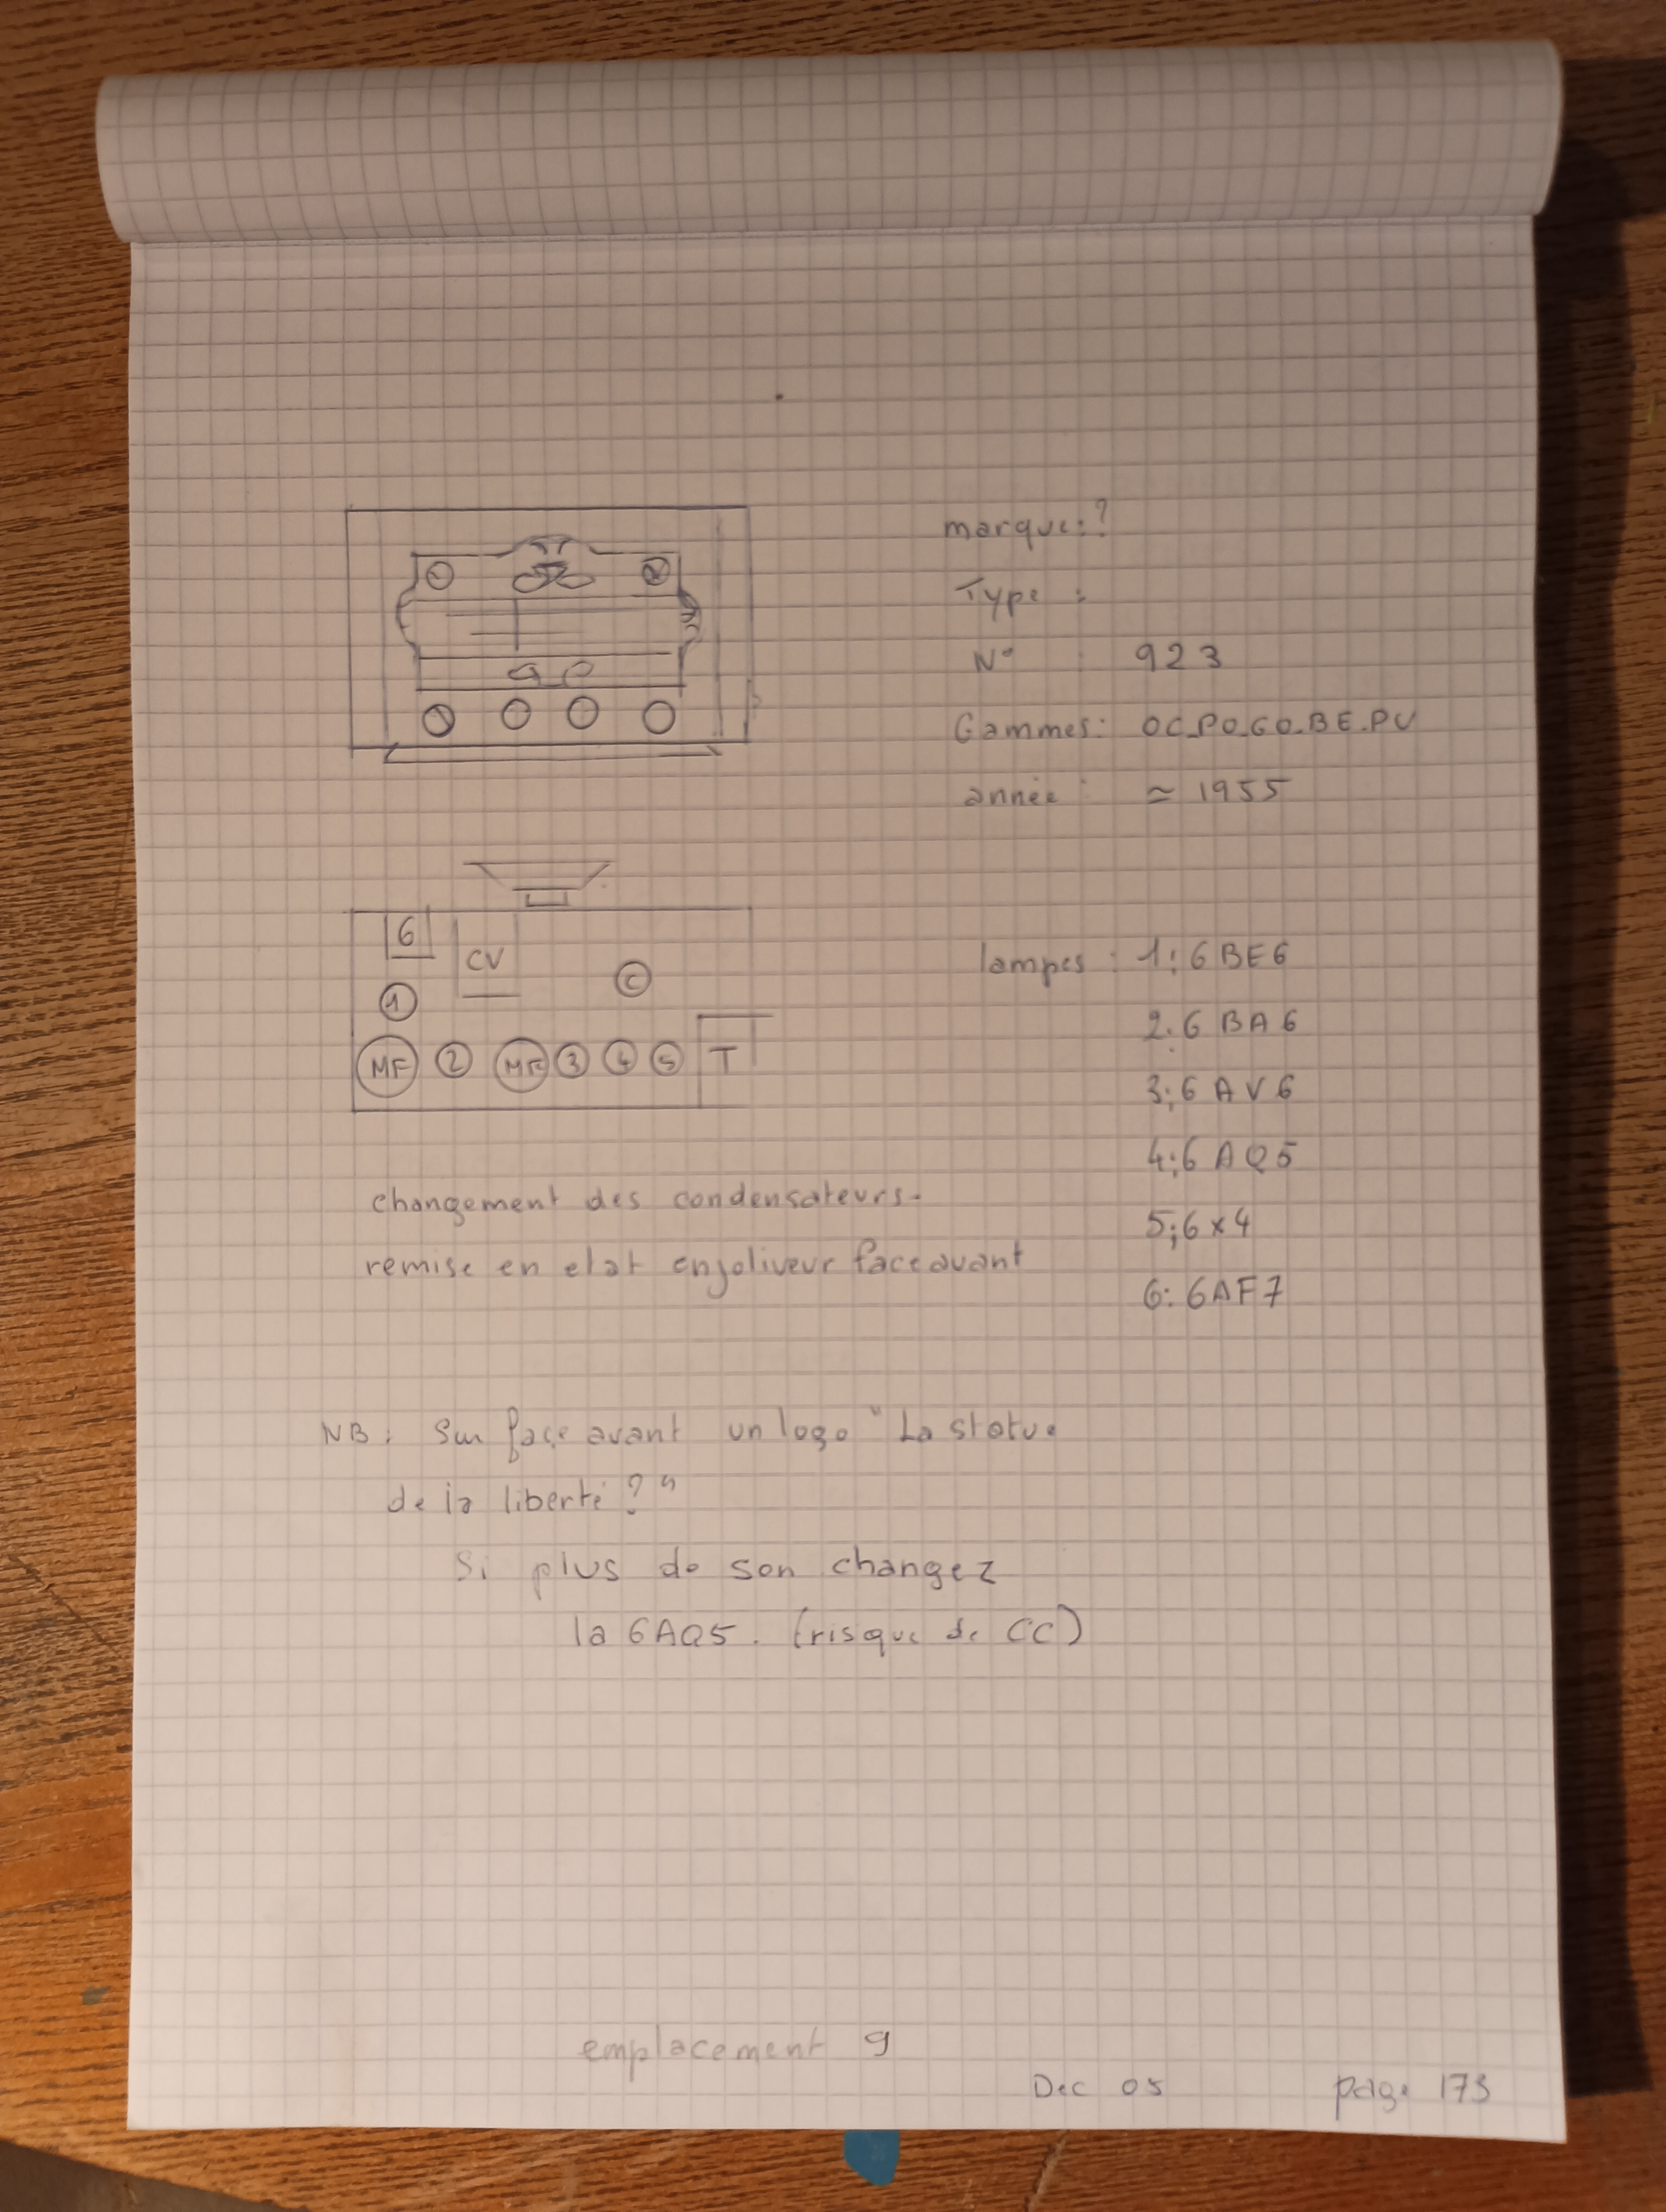 marque: ?
Type :
N° : 923
Gammes: OC_PO_GO_BE_PU
année : ≈ 1955
6
CV
C
1
MF 2 MF 3 4 5 T
lampes : 1: 6BE6
2: 6BA6
3: 6AV6
4: 6AQ5
5: 6x4
6: 6AF7
changement des condensateurs.
remise en etat enjoliveur face avant
NB: Sur face avant un logo "La statue
de la liberté ? "
Si plus de son changez
la 6AQ5. (risque de CC)
emplacement 9
Dec 05 page 173